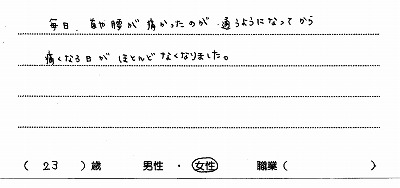 毎日、首や腰が痛かったのが 通うようになってから
痛くなる日が ほとんどなくなりました。
( 23 )歳 男性 ・ 女性 職業( )